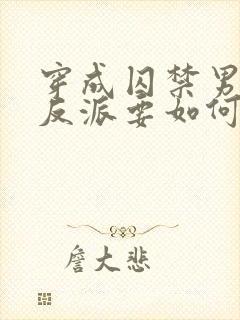 穿成囚禁男
反派要如何
詹大悲